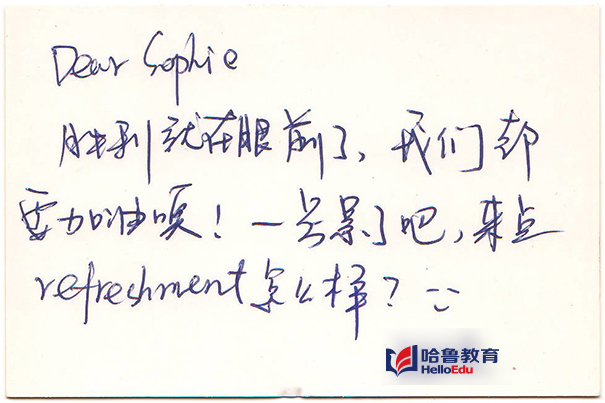 Dear Sophie
胜利就在眼前了、我们都
要加油哦！一定累了吧，来点
refreshment 怎么样？
哈鲁教育
HelloEdu